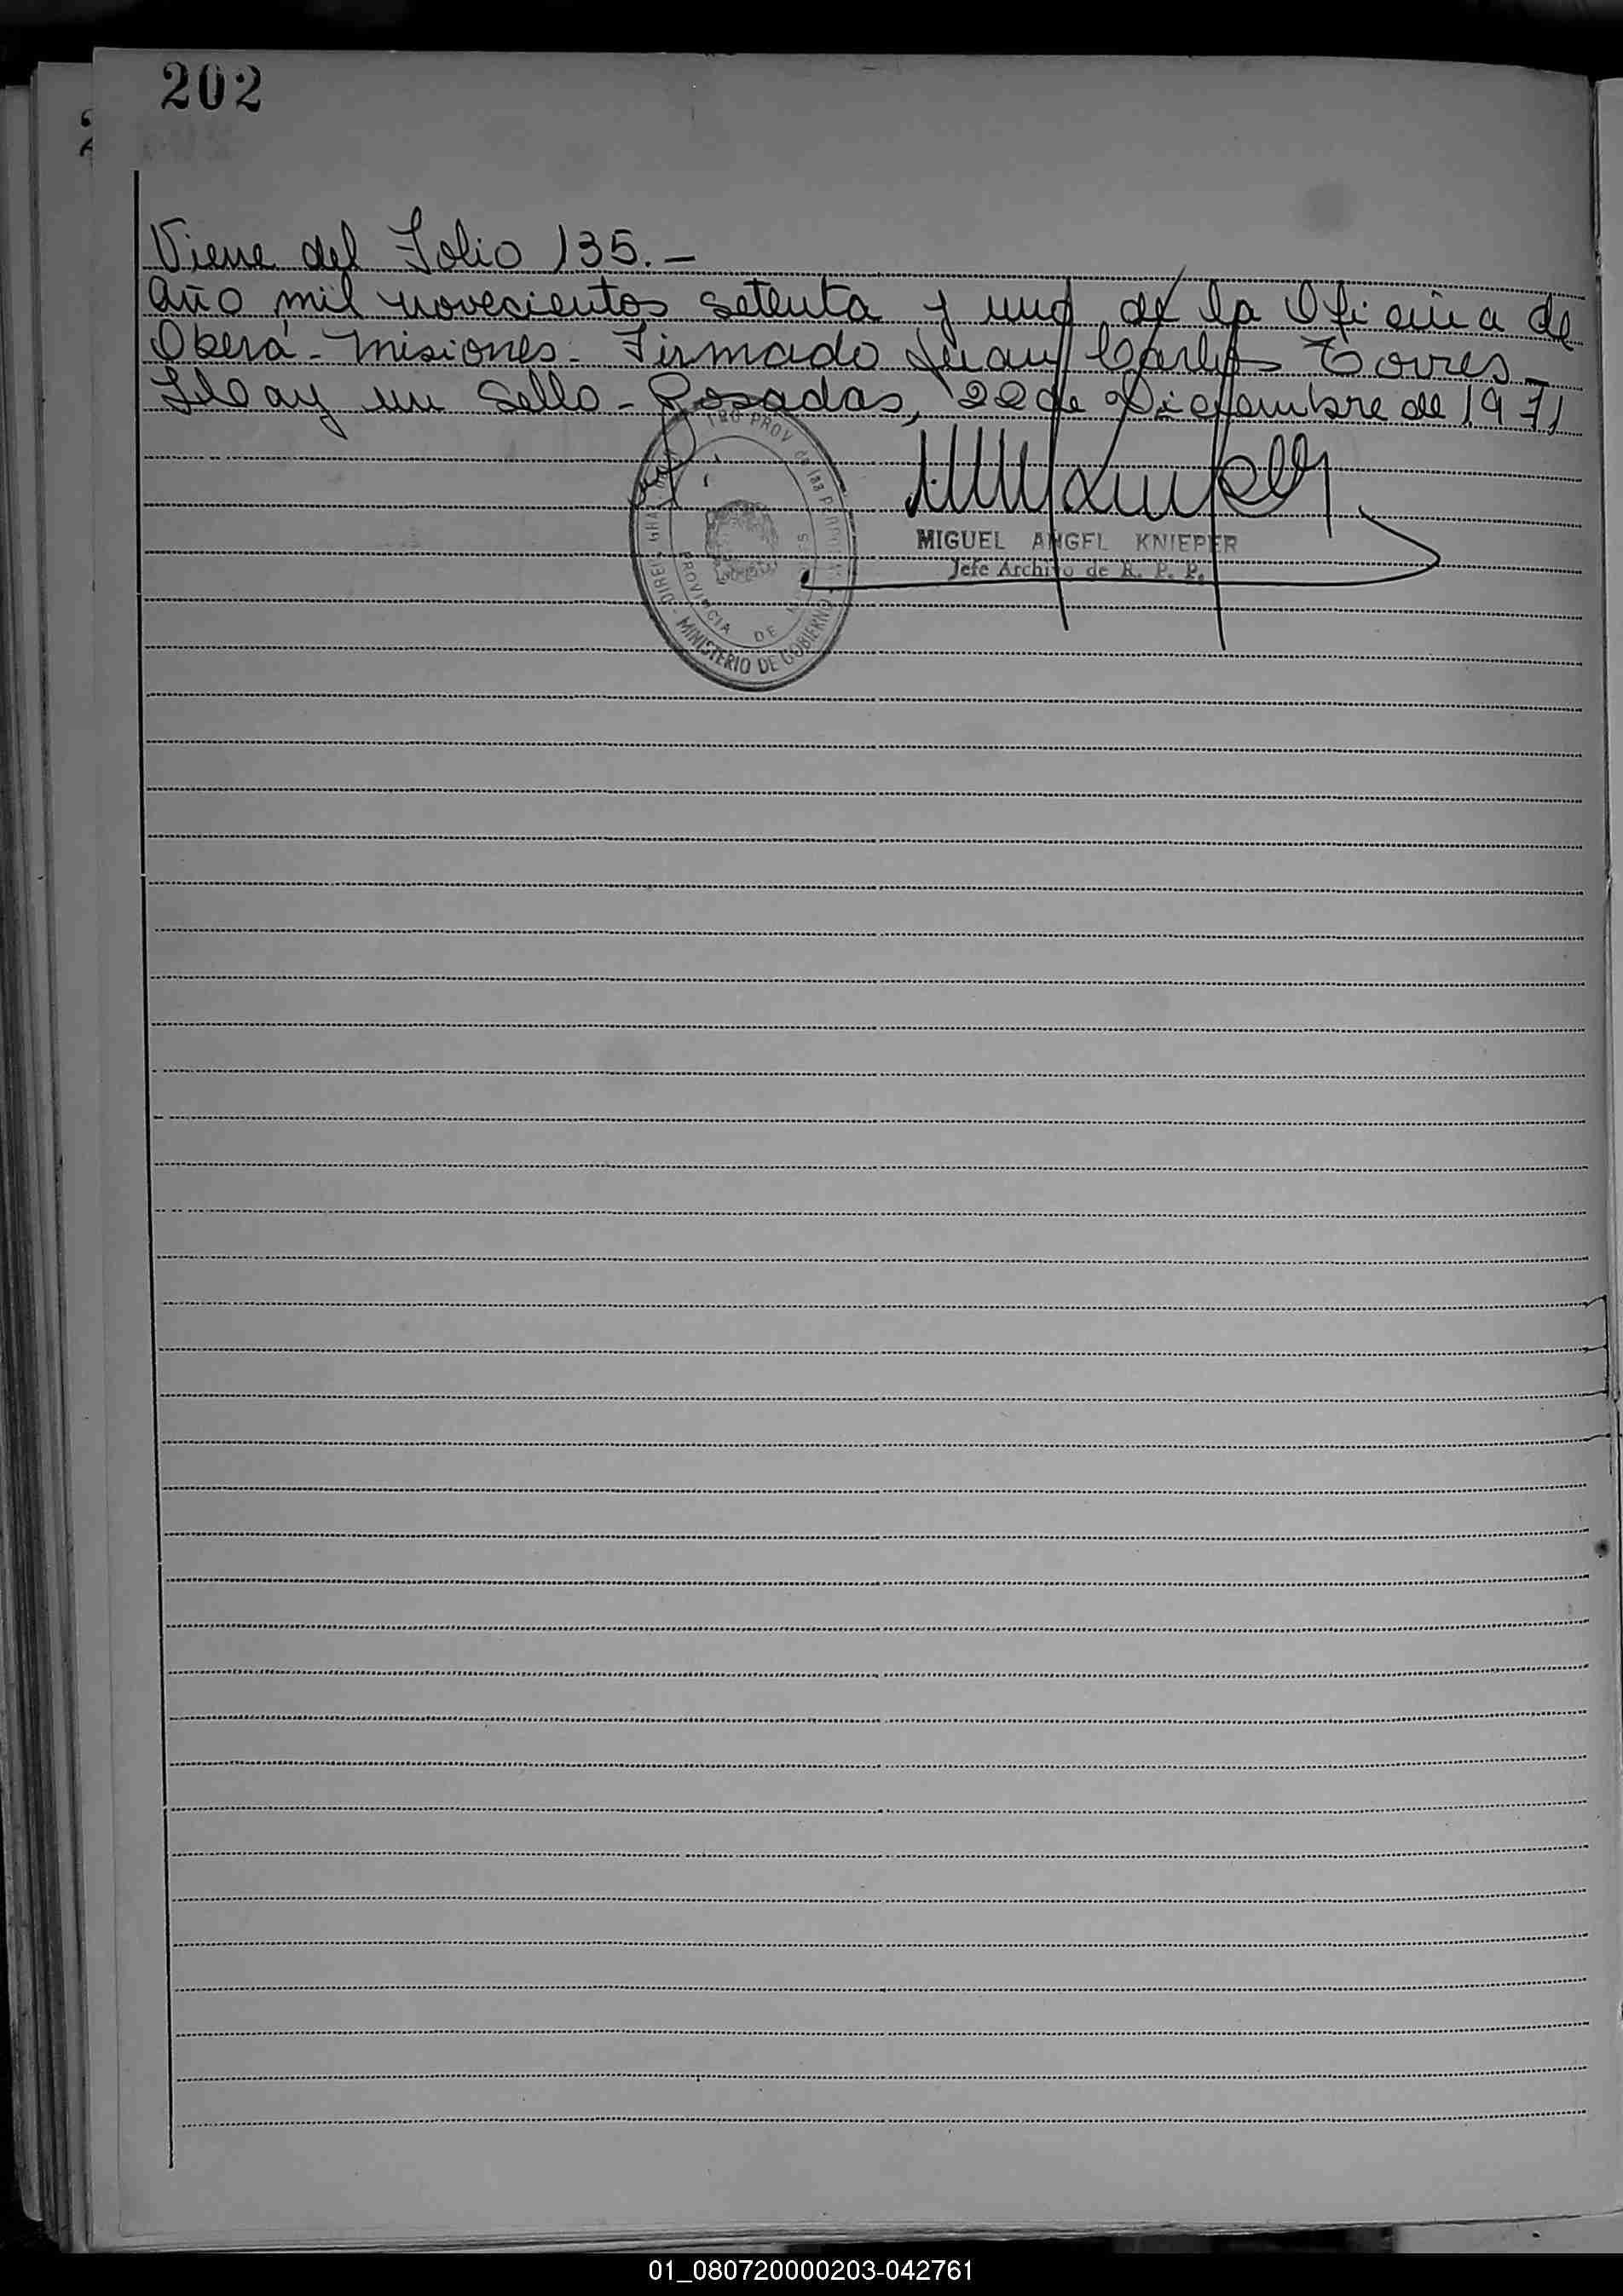 202
Viene del Folio 135.-
año mil novecientos setenta y uno de la Oficina de
Oberá - Misiones - Firmado Juan Carlos Torres -
Hay un Sello - Posadas, 22 de Diciembre de 1971
PROV de las PER
PROVINCIA DE
MINISTERIO DE GOBIERNO
MIGUEL ANGEL KNIEPER
Jefe Archivo de R. P. P.
01_080720000203-042761